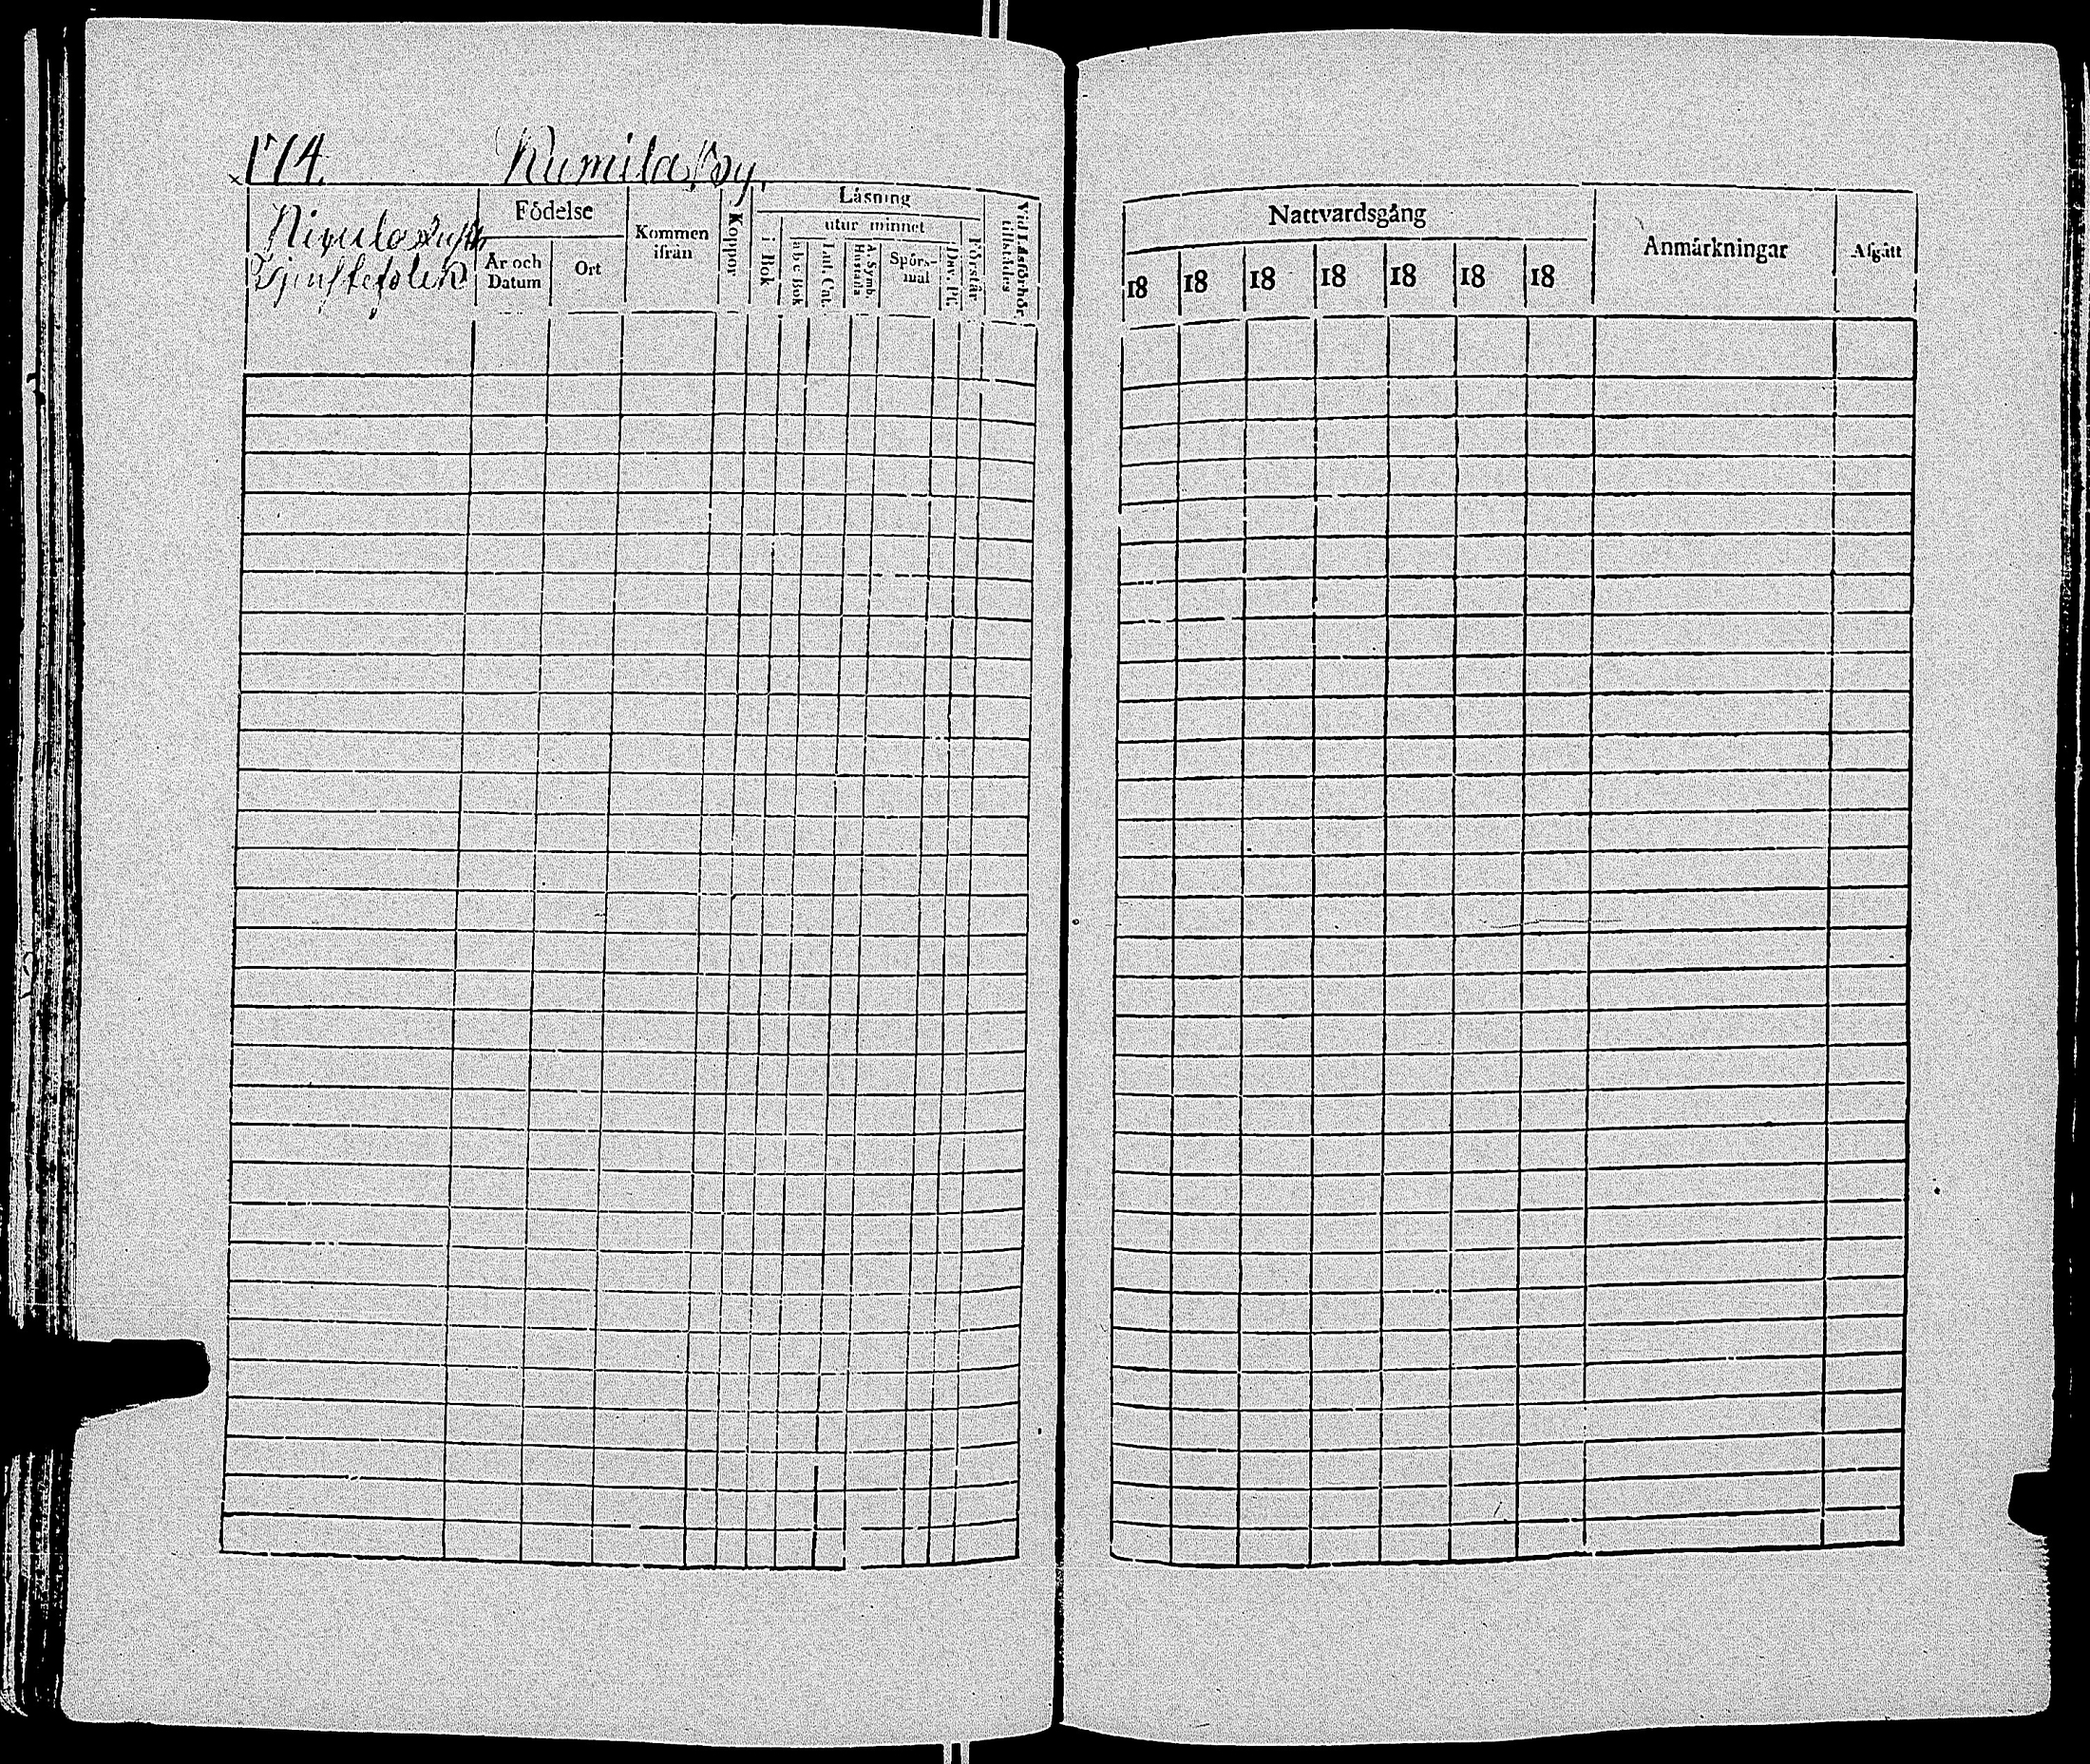 174. Kumila by.
Tjenstefolck
Födelse
År och Datum
Ort
Kommen ifrån
Koppor
Läsning
i Bok
utur minnet
a b c Bok
Lut. Cat.
A. Symb. Hustafla
Spörs-mål
Dav. Ps.
Förstår
Vid Läsförhör tillstädes
Nattvardsgång
18 18 18 18 18 18 18
Anmärkningar
Afgått